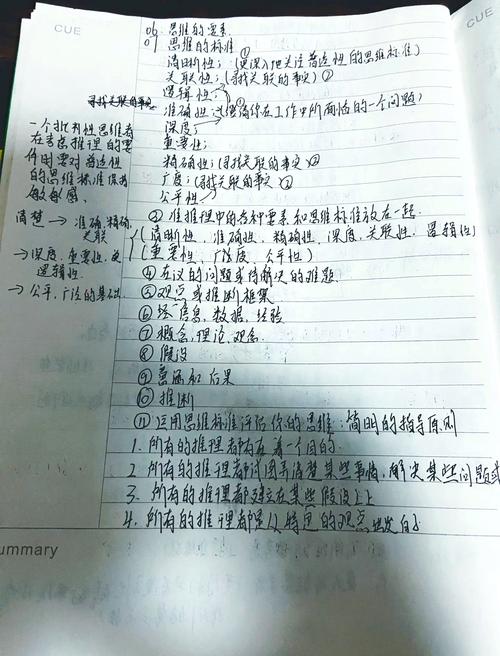 CUE
CUE
06 思维的要素
07 思维的标准
清晰性：(更深)地关注普适性的思维标准) ①
关联性：(寻找关联的事实) ②
逻辑性：
寻找关联的事实
准确性：你在工作中所面临的一个问题)
深度：
重要性：
精确性：(寻找关联的事实) ②
广度：(寻找关联的事实)
公平性
一个批判性思维者
在考虑推理的要
件时要对普适性
的思维标准保持
敏感。
清楚 → 准确，精确，
关联
→ 深度，重要性，
逻辑性。
→ 公平，广泛的基础
推理中的各种要素和思维标准放在一起.
(清晰性，准确性，精确性，深度，关联性，逻辑性)
(重要性，广泛度，公平性)
④ 在议的问题或待解决的难题.
⑤ 观点或推断框架
⑥ 信息，数据，经验
⑦ 概念，理论，观念.
⑧ 假设
⑨ 意涵和后果
⑩ 推断
⑪ 运用思维标准评估你的思维：简明的指导原则
1. 所有的推理都存在着一个目的.
2. 所有的推理都试图弄清楚某些事情，解决某些问题
3. 所有的推理都建立在某些假设之上
4. 所有的推理都是从特定的观点出发
ummary